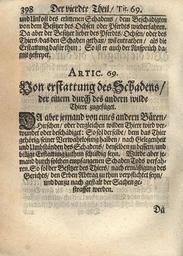 398 Der vierde Theil / Tit. 69.
und Unkost des erlittenen Schadens / dem Beschädigten
von dem Besitzer des Ochsen oder Pferdes wiederfahren.
Da aber der Besitzer lieber des Pferdes / Ochsen / oder des
Thiers / das den Schaden gethan / wolte / als die
Erstattung dafür thun / So ist er auch der Ansprüch da-
mit gefreyet.
ARTIC. 69.
Von erstattung des Schadens /
der einem durch des andern wilds
Thier zugefüget.
DA aber jemand von eines andern Bären /
Hirschen / oder dergleichen wilden Thier wird ver-
wundet oder beschädiget: So sol derselbe / dem das Thier
gehörig seiner Verwahrlosung halben / nach Gelegenheit
und Umbständen des Schadens / denselben zu bessern / und
billige Erstattung zu thun schuldig seyn. Würde aber je-
mand durch solchen empfangenen Schaden Todts verfah-
ren. So sol der Besitzer des Thiers / nach ermässigung
des Gerichts / den Erben Abtrag zu thun verpflichtet seyn /
und dazu nach gestalt der Sachen ge-
straffet werden.
Da